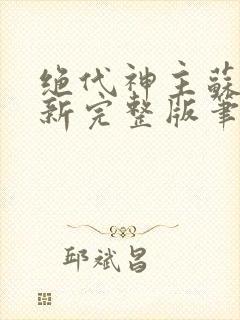 绝代神主蘇
新完整版筆
邱斌昌